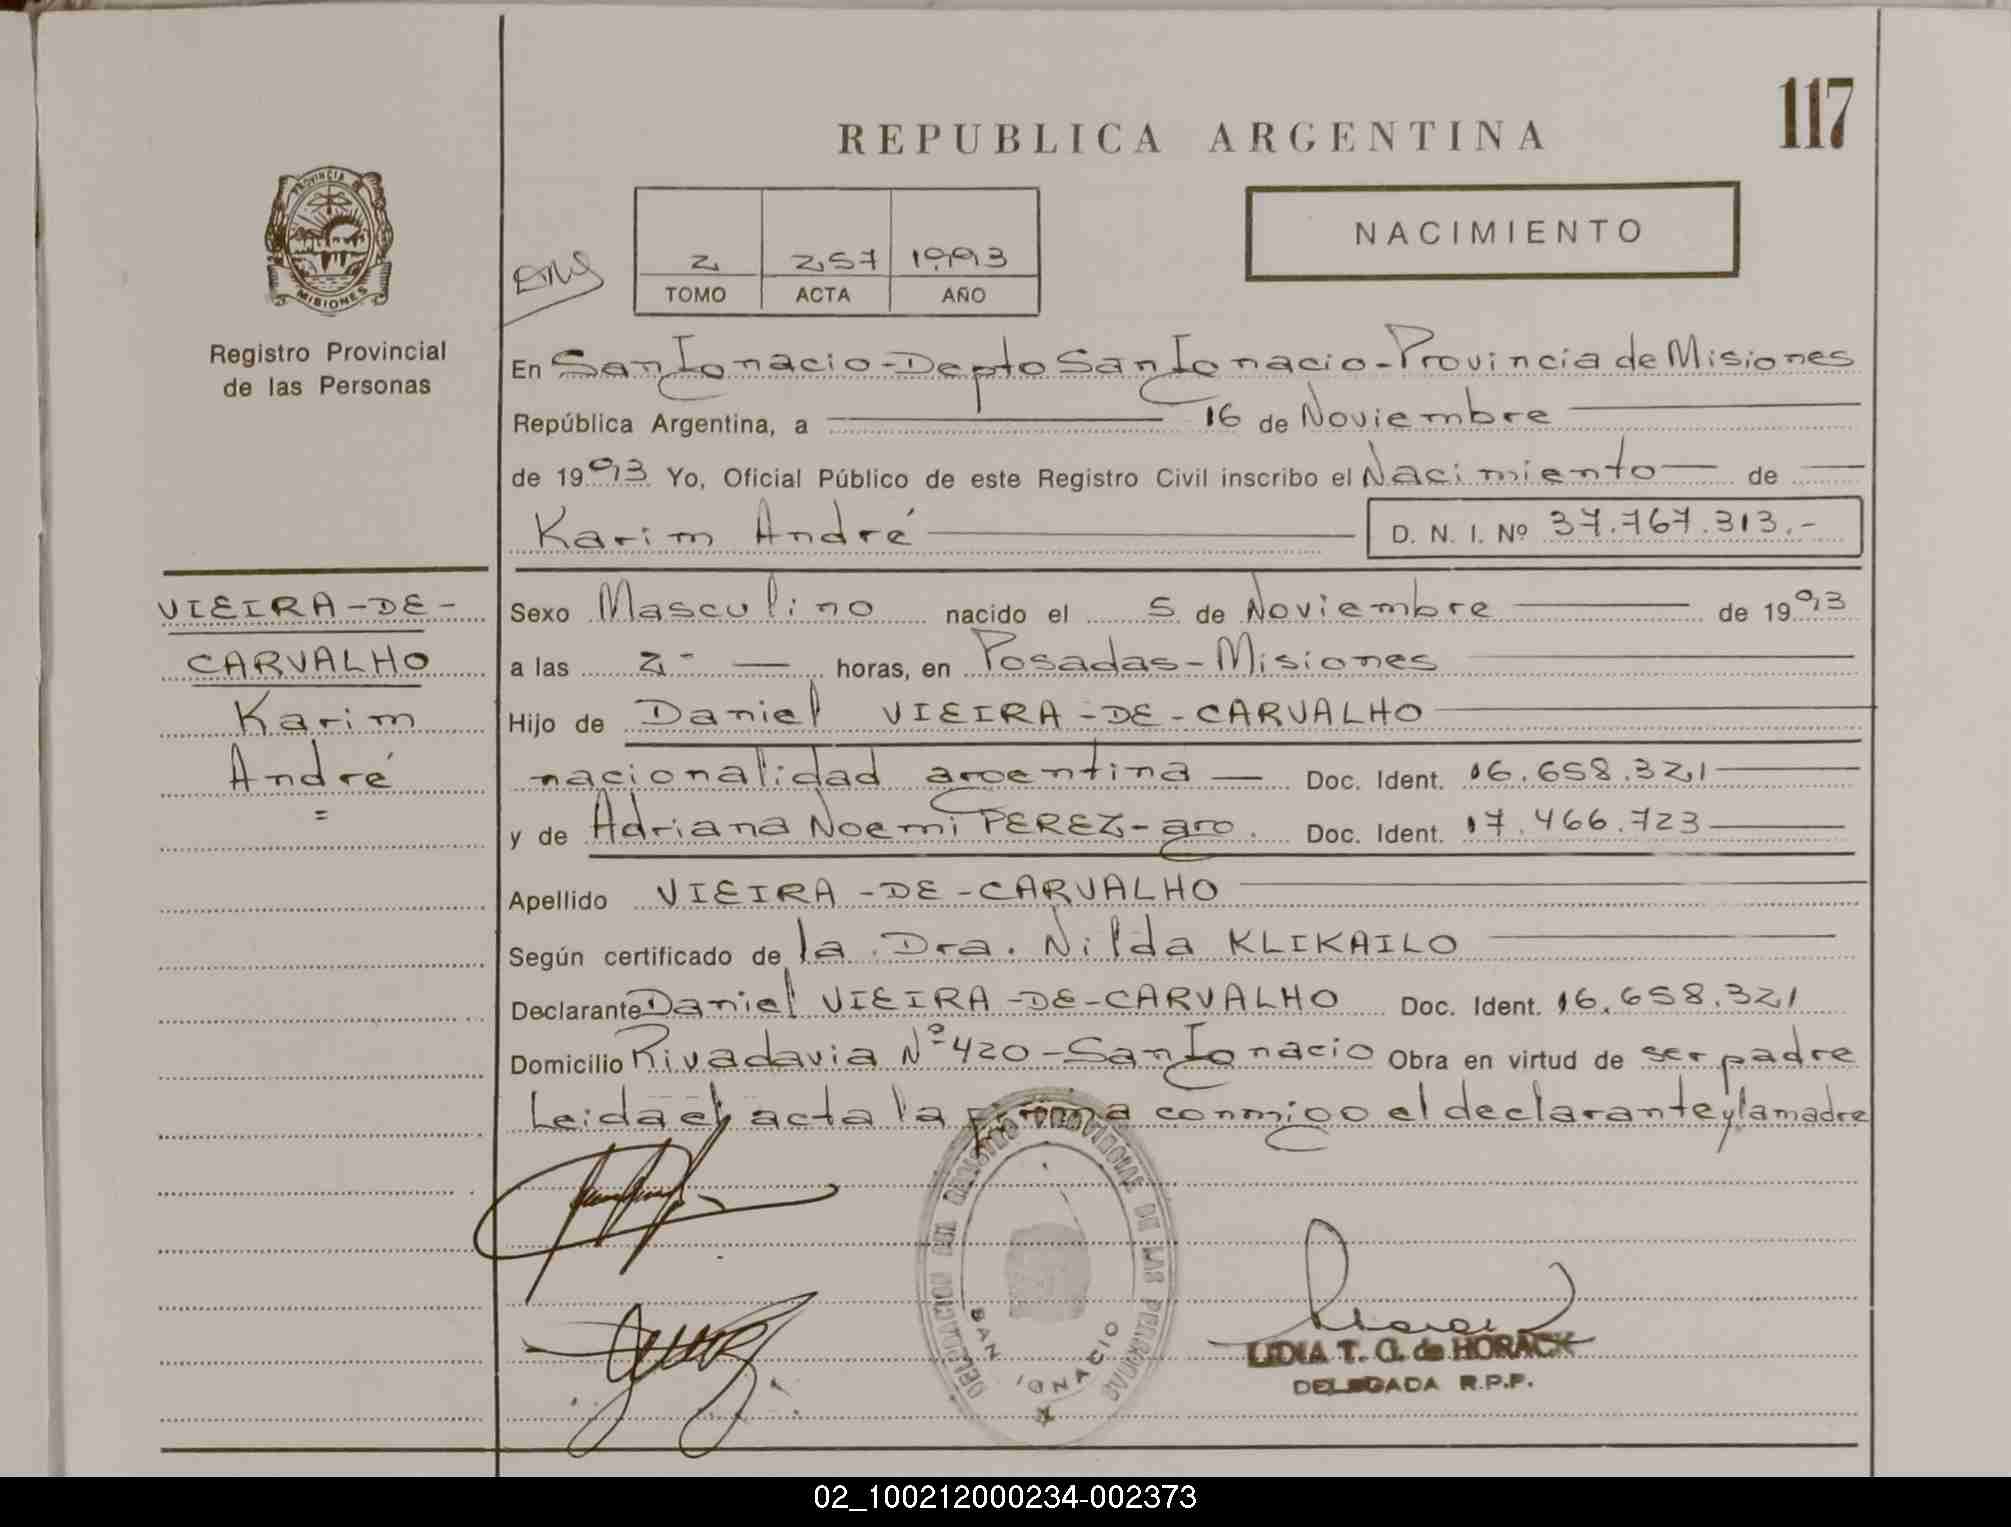 117
REPUBLICA ARGENTINA
NACIMIENTO
PROVINCIA DE
MISIONES
Registro Provincial
de las Personas
2 257 1993
TOMO ACTA AÑO
En San Ignacio - Depto San Ignacio - Provincia de Misiones
República Argentina, a 16 de Noviembre
de 1993 Yo, Oficial Público de este Registro Civil inscribo el Nacimiento de
Karim André D. N. I. Nº 37.767.313.-
VIEIRA-DE-
CARVALHO
Karim
André
=
Sexo Masculino nacido el 5 de Noviembre de 1993
a las 2- horas, en Posadas - Misiones
Hijo de Daniel VIEIRA-DE-CARVALHO
nacionalidad argentina Doc. Ident. 16.658.321
y de Adriana Noemi PEREZ - arg. Doc. Ident. 17.466.723
Apellido VIEIRA-DE-CARVALHO
Según certificado de la Dra. Nilda KLIKAILO
Declarante Daniel VIEIRA-DE-CARVALHO Doc. Ident. 16.658.321
Domicilio Rivadavia Nº 420 - San Ignacio Obra en virtud de ser padre
Leida el acta la firma conmigo el declarante y la madre
DELEGACION DEL REGISTRO PROVINCIAL DE LAS PERSONAS
SAN IGNACIO
LIDIA T. G. de HORACK
DELEGADA R.P.P.
02_100212000234-002373